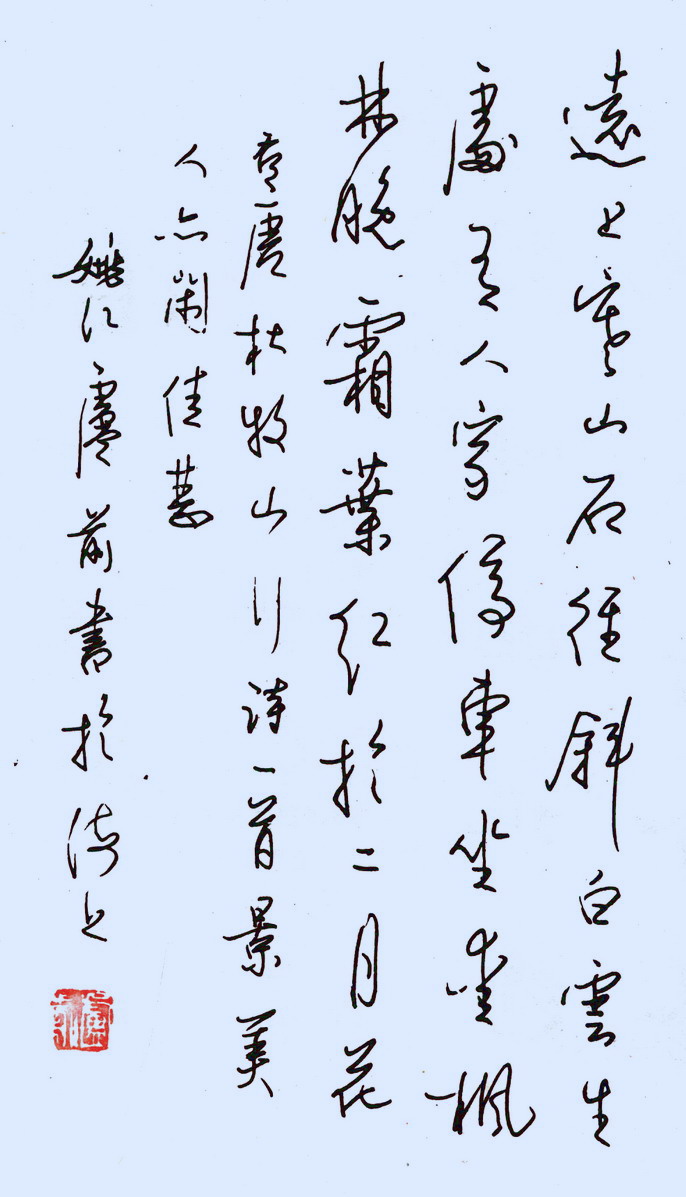 遠上寒山石徑斜白雲生
處有人家停車坐愛楓
林晚霜葉紅於二月花
唐杜牧山行詩一首景美
人亦閑佳
姚江前書於滬上